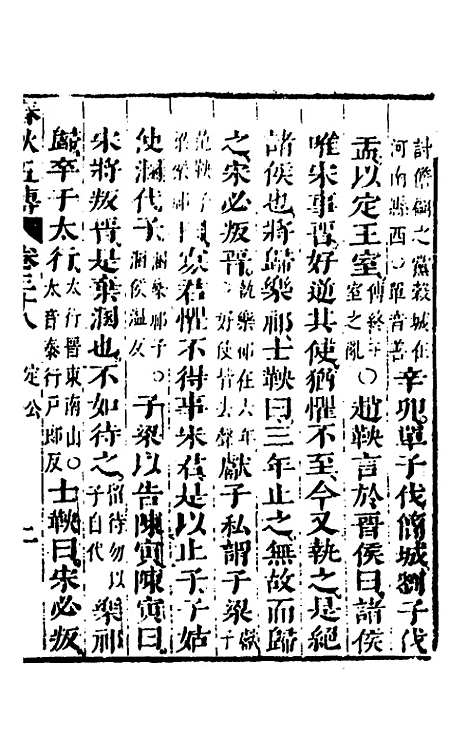 討儋翩之黨穀城在河南縣西○單音善辛卯單子伐簡城劉子伐
盂以定王室傳終王室之亂○趙鞅言於晉侯曰諸侯
唯宋事晉好逆其使猶懼不至今又執之是絕
諸侯也將歸樂祁士鞅曰三年止之無故而歸
之宋必叛晉執樂祁在六年○好使皆去聲獻子私謂子梁獻子
范鞅子梁樂祁曰寡君懼不得事宋君是以止子子姑
使溷代子溷樂祁子○溷侯溫反子梁以告陳寅陳寅曰
宋將叛晉是棄溷也不如待之留待勿以子自代樂祁
歸卒于太行太行晉東南山○太音泰行戶郎反士鞅曰宋必叛
春秋左傳 卷三十八 定公 二